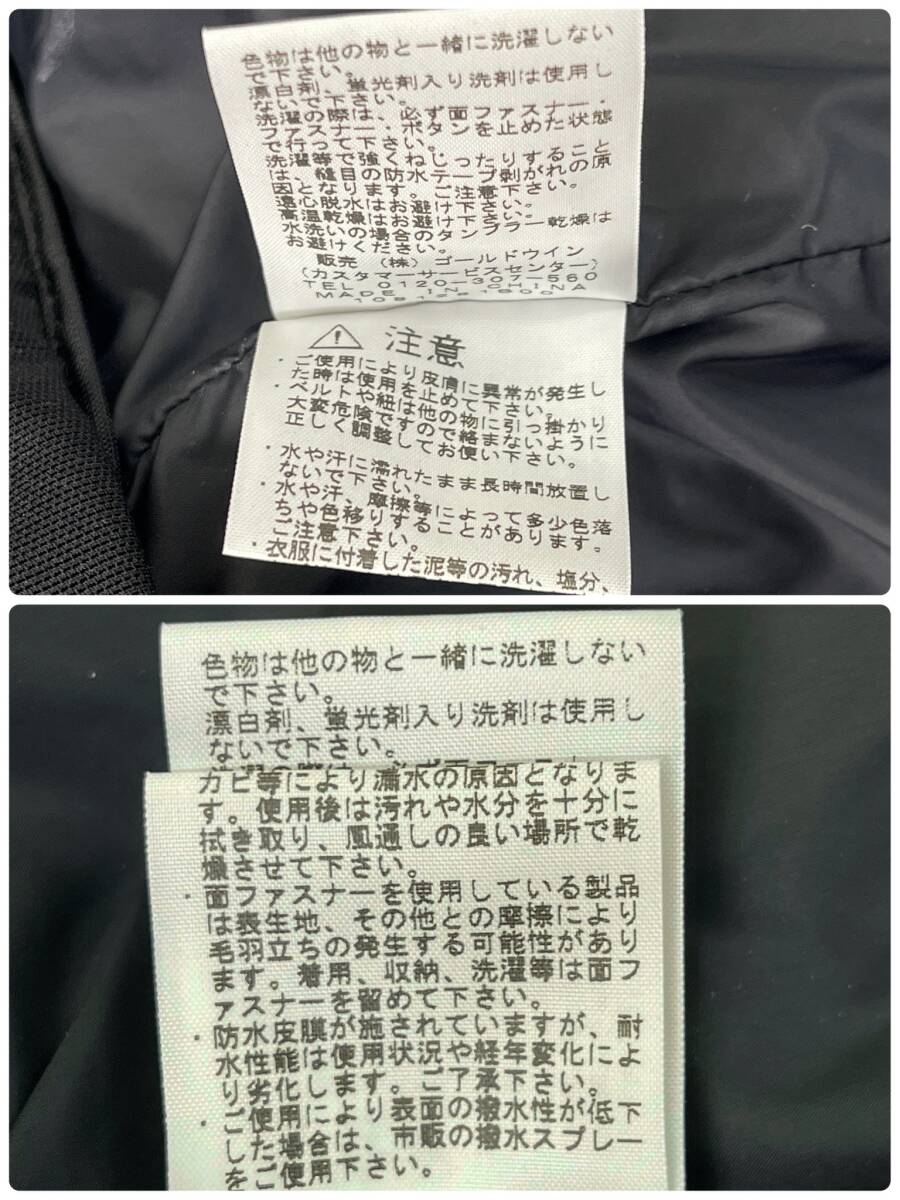 色物は他の物と一緒に洗濯しない
で下さい。
漂白剤、蛍光剤入り洗剤は使用し
ないで下さい。
洗濯の際は、必ず面ファスナー・
ファスナー・ボタンを止めた状態
で行って下さい。
洗濯等で強くねじったりすること
は、縫目の防水テープ剥がれの原
因となります。ご注意下さい。
遠心脱水はお避け下さい。
高温乾燥はお避け下さい。
水洗いの場合のタンブラー乾燥は
お避けください。
販売 (株)ゴールドウイン
(カスタマーサービスセンター)
TEL 0120-307-560
MADE IN CHINA
⚠ 注意
・ご使用により皮膚に異常が発生し
た時は使用を止めて下さい。
・ベルトや紐は他の物に引っ掛かり
大変危険ですので絡まないように
正しく調整してお使い下さい。
・水や汗に濡れたまま長時間放置し
ないで下さい。
・水や汗、摩擦等によって多少色落
ちや色移りすることがあります。
ご注意下さい。
・衣服に付着した泥等の汚れ、塩分、
色物は他の物と一緒に洗濯しない
で下さい。
漂白剤、蛍光剤入り洗剤は使用し
ないで下さい。
カビ等により漏水の原因となりま
す。使用後は汚れや水分を十分に
拭き取り、風通しの良い場所で乾
燥させて下さい。
・面ファスナーを使用している製品
は表生地、その他との摩擦により
毛羽立ちの発生する可能性があり
ます。着用、収納、洗濯等は面フ
ァスナーを留めて下さい。
・防水皮膜が施されていますが、耐
水性能は使用状況や経年変化によ
り劣化します。ご了承下さい。
・ご使用により表面の撥水性が低下
した場合は、市販の撥水スプレー
をご使用下さい。